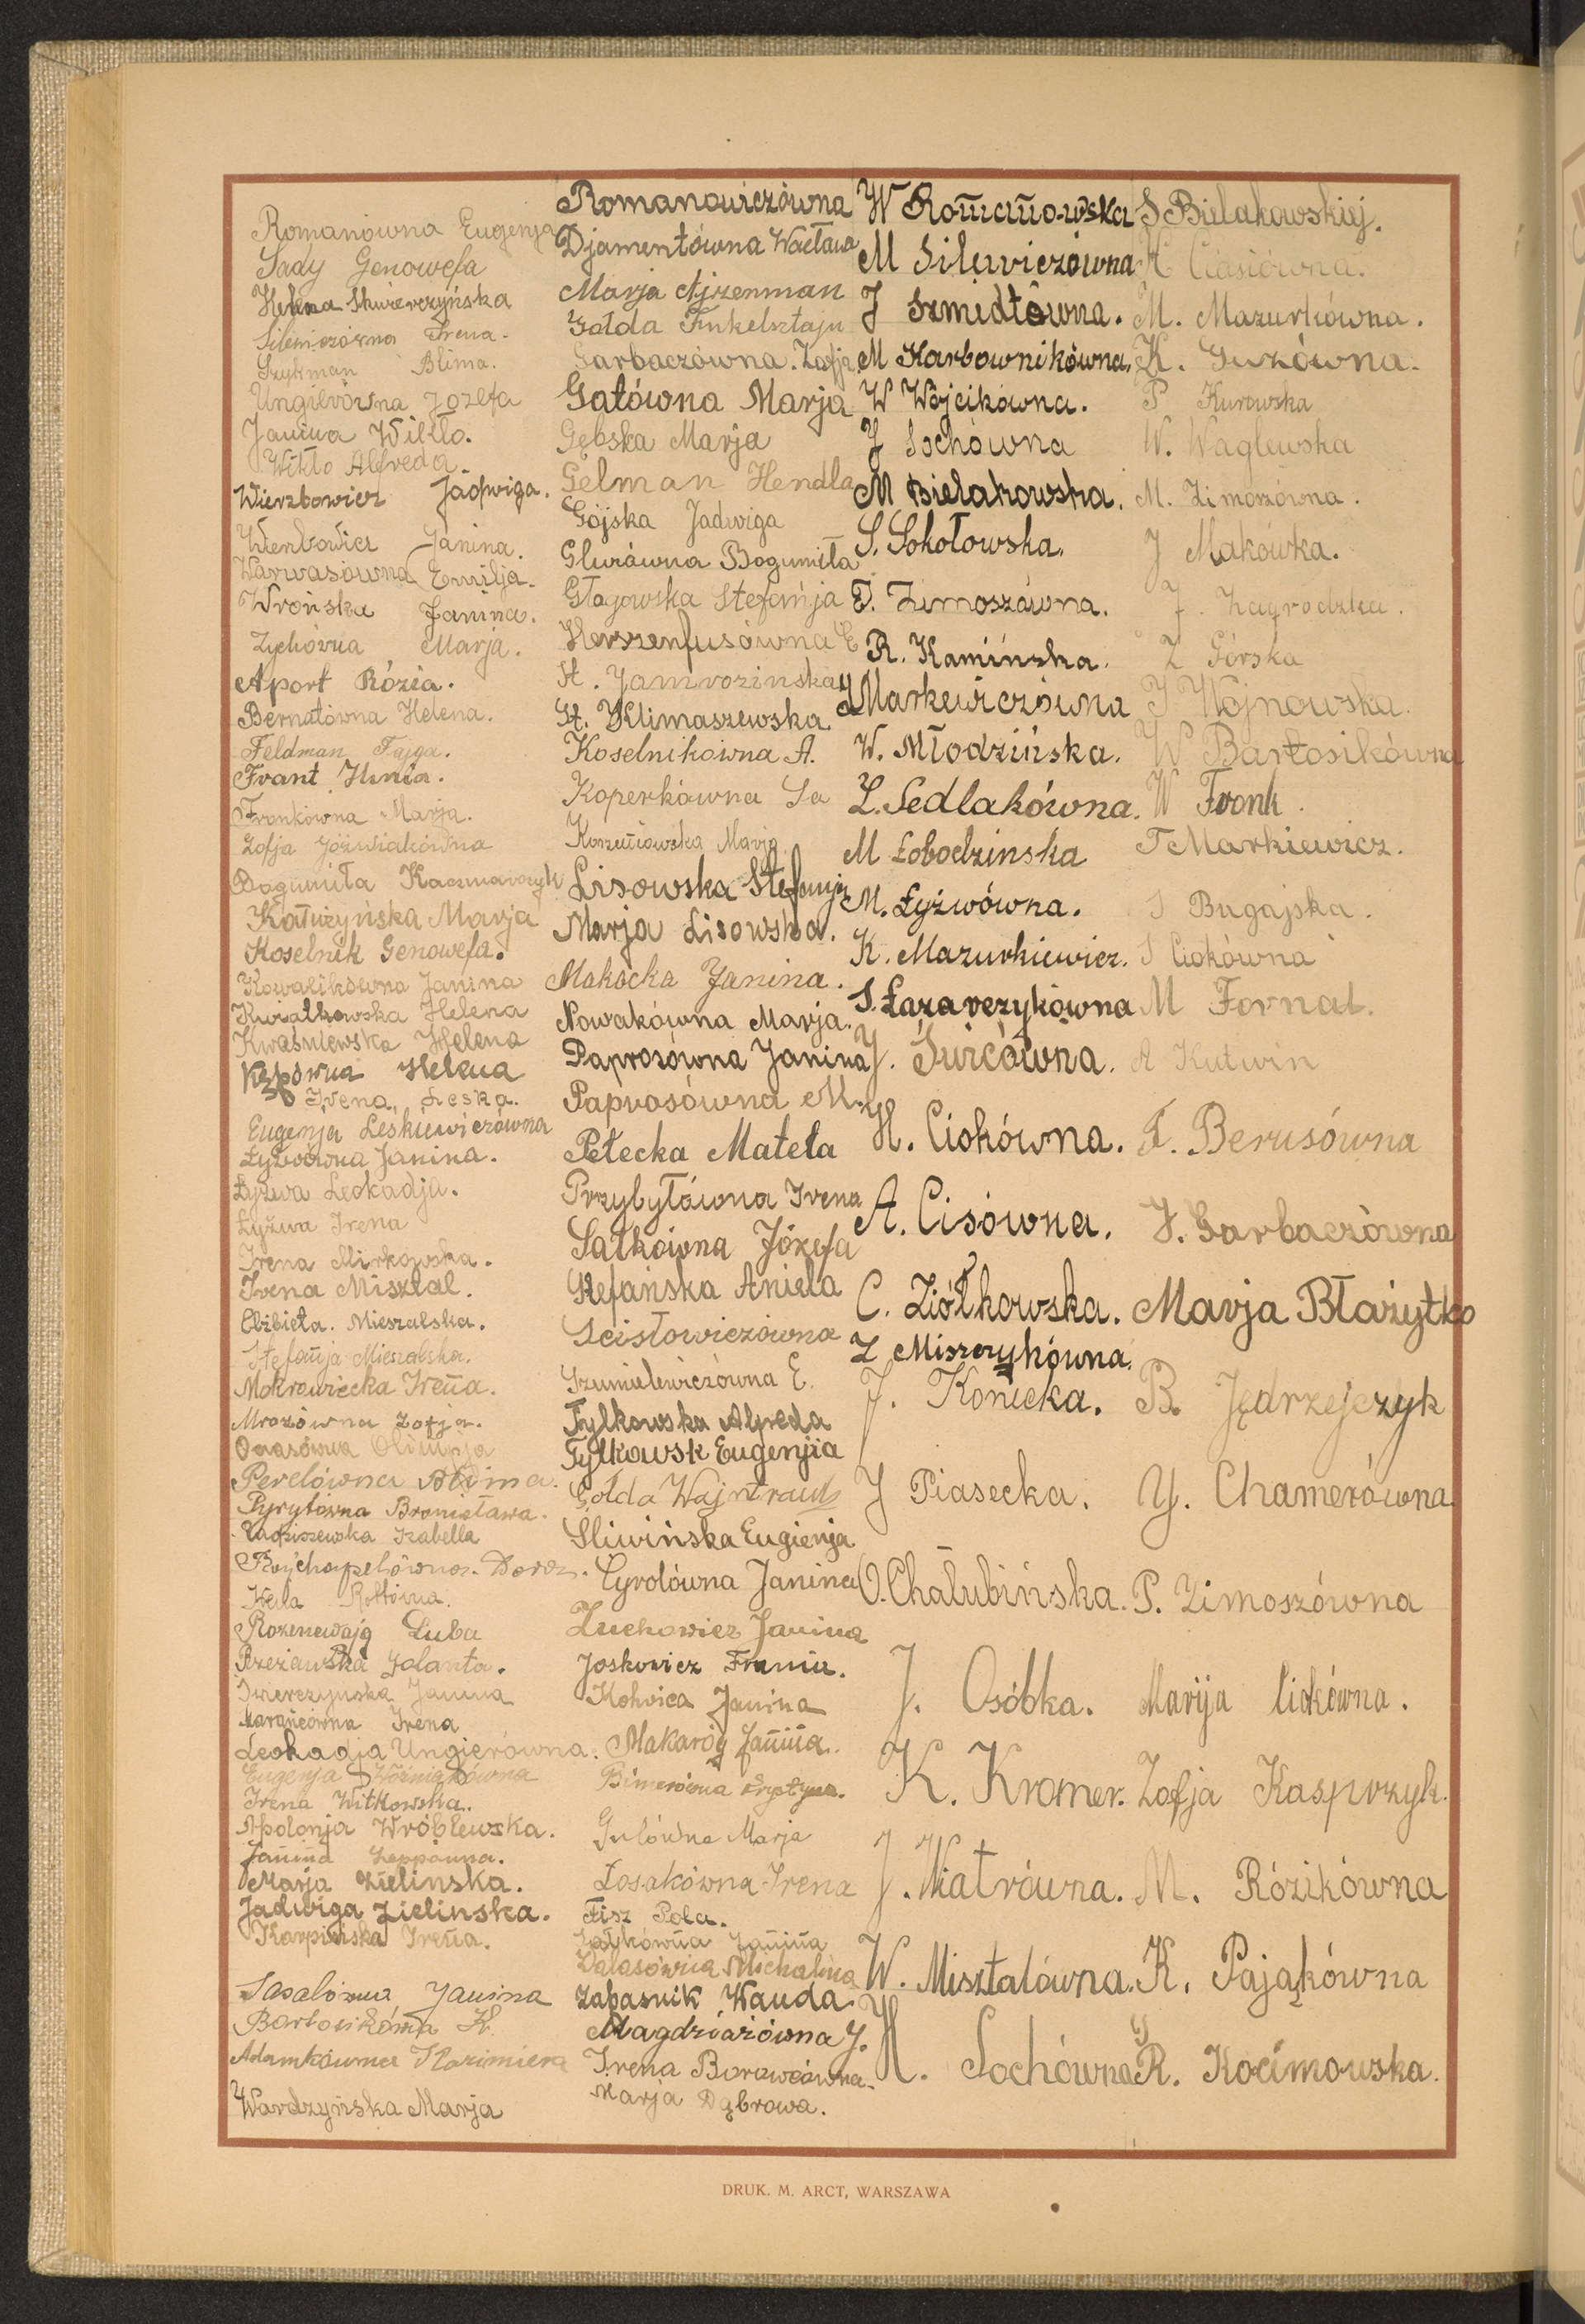 Romanówna Eugenja
Sady Genowefa
Helena Skwierczyńska
Silewiczówna Irena.
Szykman Blima.
Ungierówna Józefa
Janina Wikło.
Wikło Alfreda.
Wierzbowicz Jadwiga.
Wierzbowicz Janina.
Warwasówna Emilja.
Wrońska Janina.
Zychówna Marja.
Aport Rózia.
Bernatówna Helena.
Feldman Fajga.
Frant Hinia.
Frankówna Marja.
Zofja Jóźwiakówna
Bogumiła Kaczmarczyk
Kałużyńska Marja
Koselnik Genowefa.
Kowalikówna Janina
Kwiatkowska Helena
Kwaśniewska Helena
Kępówna Helena
Irena Leska.
Eugenja Leśkiewiczówna
Łyżwówna Janina.
Łyżwa Leokadja.
Łyżwa Irena
Irena Mirkowska.
Irena Misztal.
Elżbieta Mieszalska.
Stefanja Mieszalska.
Mokrowiecka Irena.
Mrozówna Zofja.
Owasówna Olimpja
Perelówna Blima.
Pyrytówna Bronisława.
Radziszewska Izabella
Rajchapelówna Dora.
Rottówna.
Rozencwajg Luba
Rzeżawska Jolanta.
Świerczyńska Janina
Marańcówna Irena
Leokadja Ungierówna.
Eugenja Woźniakówna
Irena Witkowska.
Apolonja Wróblewska.
Janina Zeppówna.
Marja Zielinska.
Jadwiga Zielinska.
Karpińska Irena.
Sasalówna Janina
Bartosikówna K.
Adamkówna Kazimiera
Wardzyńska Marja
Romanowiczówna
Djamentówna Wacława
Marja Ajzenman
Gołda Finkelsztajn
Garbaczówna. Zofja
Gatówna Marja
Gębska Marja
Gelman Hendla
Gójska Jadwiga
Glurówna Bogumiła
Głagowska Stefanja
Herszenfusówna E
H. Jamrozinska
H. Klimaszewska
Koselnikówna A.
Koperkówna Sa
Korzeniowska Marja
Lisowska Stefanja
Marja Lisowska.
Makocka Janina.
Nowakówna Marja.
Paprosówna Janina
Paprosówna M.
Petecka Mateła
Przybyłówna Irena
Sałkówna Józefa
Stefańska Aniela
Scisłowiczówna
Szumielewiczówna E.
Tylkowska Alfreda
Tylkowsk Eugenjia
Gołda Wajntraub
Śliwińska Eugienja
Cyrolówna Janina
Zuchowicz Janina
Joskowicz Frania.
Kohvica Janina
Makaróg Janina.
Bimerówna Krystyna.
Gulówna Marja
Łosakówna Irena
Fisz Pola.
Sałkówna Janina
Walasówna Michalina
Zapaśnik Wanda.
Magdziażówna J.
Irena Borowcówna.
Marja Dąbrowa.
W Romanowska
M Silewiczówna
J Szmidtówna.
M Karbownikówna.
W Wójcikówna.
J Sochówna
M Bielakowska.
S. Sokołowska.
F. Zimoszówna.
R. Kamińska.
J Markewiczówna
W. Młodzińska.
Z. Sedlakówna.
M Łobodzinska
M. Łyżwówna.
K. Mazurkiewicz.
S. Łazarczykówna
J. Świcówna.
H. Ciokówna.
A. Cisówna.
C. Ziółkowska.
Z Miszczykówna.
J. Konicka.
J Piasecka.
O. Chałubińska.
J. Osóbka.
K. Kromer.
J. Wiatrówna.
W. Misztalówna.
H. Sochówna
S Bielakowskiej.
K Ciasiówna.
M. Mazurkówna.
K. Guzówna.
P Kurowska
W. Waglewska
M. Zimoszówna.
J Makówka.
J. Zagrodzka.
Z Górska
J Wojnowska.
W Bartosikówna
W Fronk.
T Markiewicz.
S Bugajska.
S Ciokówna
M Fornal.
A Kutwin
F. Berusówna
J. Garbaczówna
Marja Błażytko
B. Jędrzejczyk
Y. Chamerówna
P. Zimoszówna
Marija Ciokówna.
Zofja Kasprzyk.
M. Rózikówna
K. Pająkówna
R. Kocimowska.
DRUK. M. ARCT, WARSZAWA